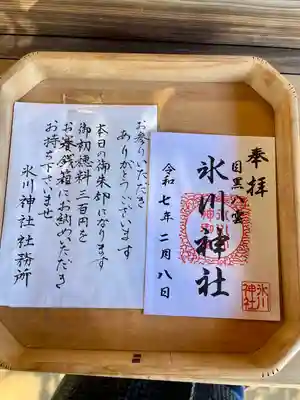 お参りいただき
ありがとうございます
本日の御朱印になります
御初穂料三百円を
お賽銭箱にお納めいただき
お持ち下さいませ
氷川神社社務所
奉拝
目黒八雲
氷川神社
令和七年二月八日
氷川
神社